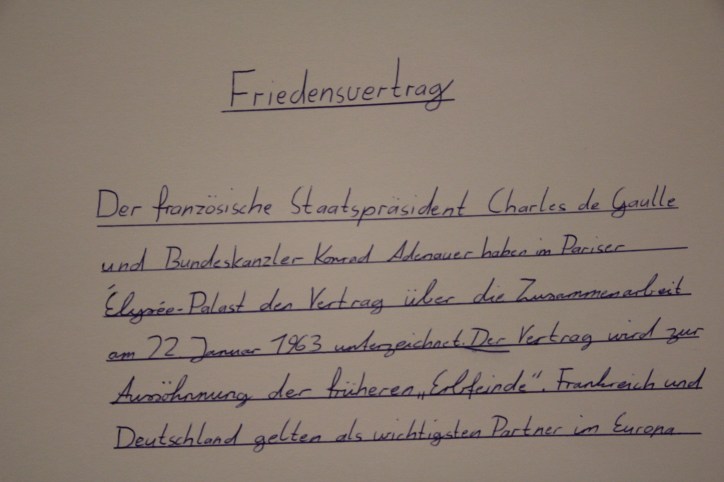 Friedensvertrag
Der französische Staatspräsident Charles de Gaulle
und Bundeskanzler Konrad Adenauer haben im Pariser
Élysée-Palast den Vertrag über die Zusammenarbeit
am 22 Januar 1963 unterzeichnet. Der Vertrag wird zur
Aussöhnung der früheren „Erbfeinde“. Frankreich und
Deutschland gelten als wichtigsten Partner im Europa